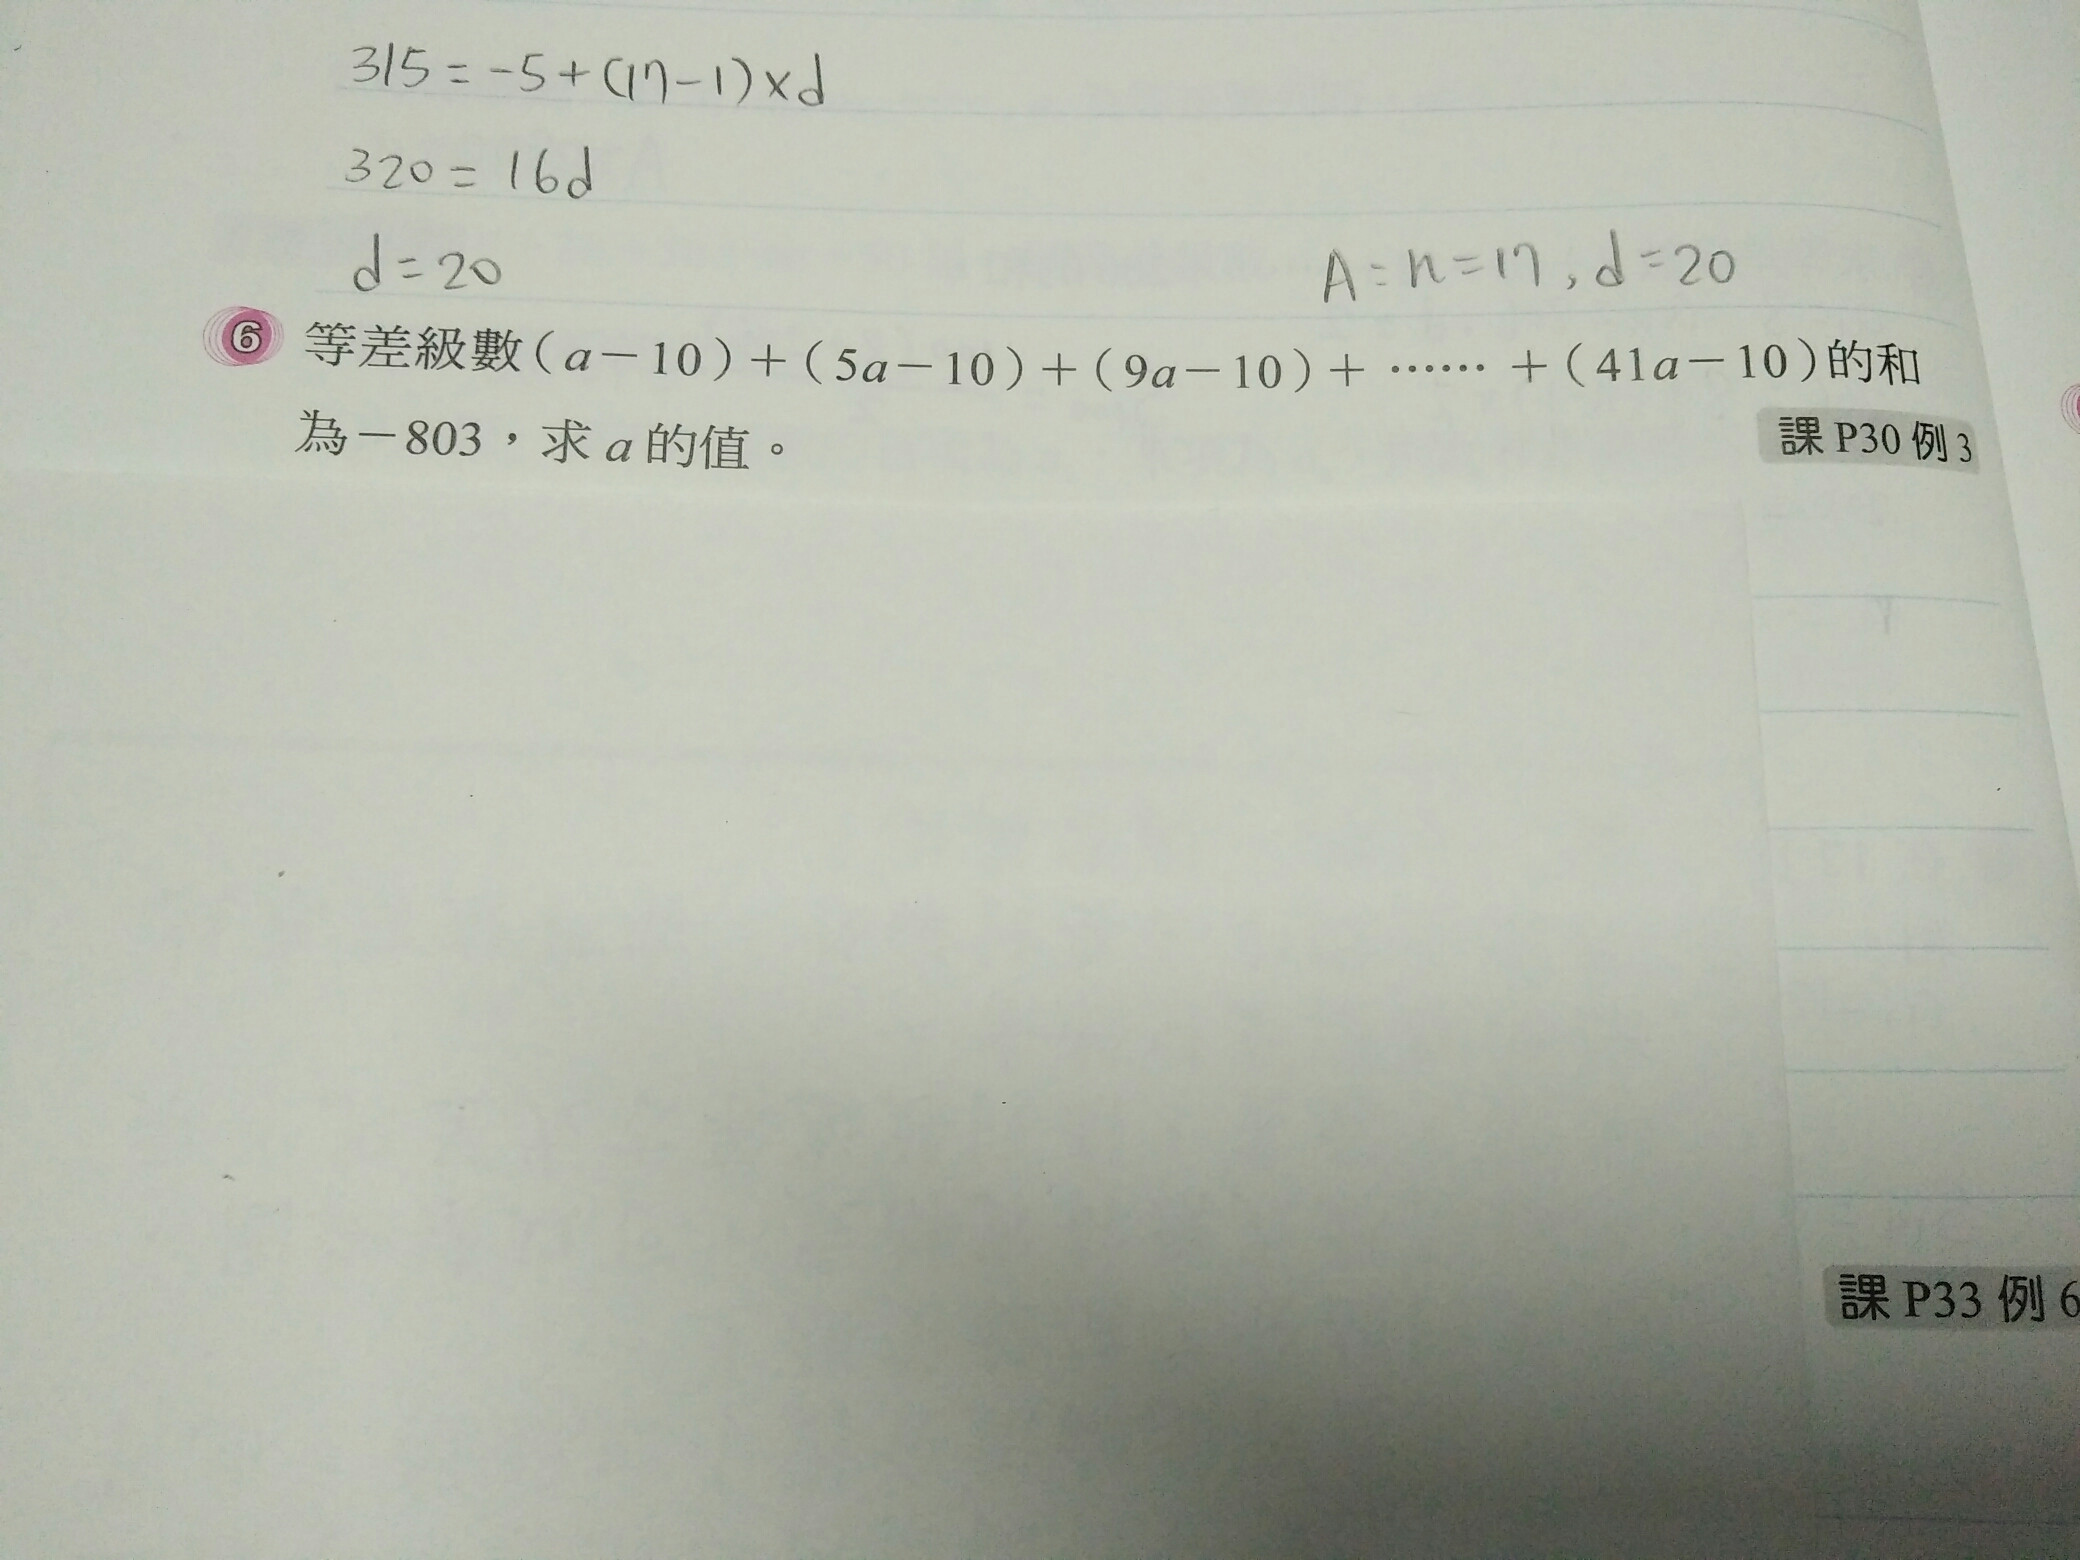 315=-5+(17-1)×d
320=16d
d=20
A=n=17,d=20
6 等差級數(a-10)+(5a-10)+(9a-10)+……+(41a-10)的和
為-803，求a的值。
課P30例3
課P33例6